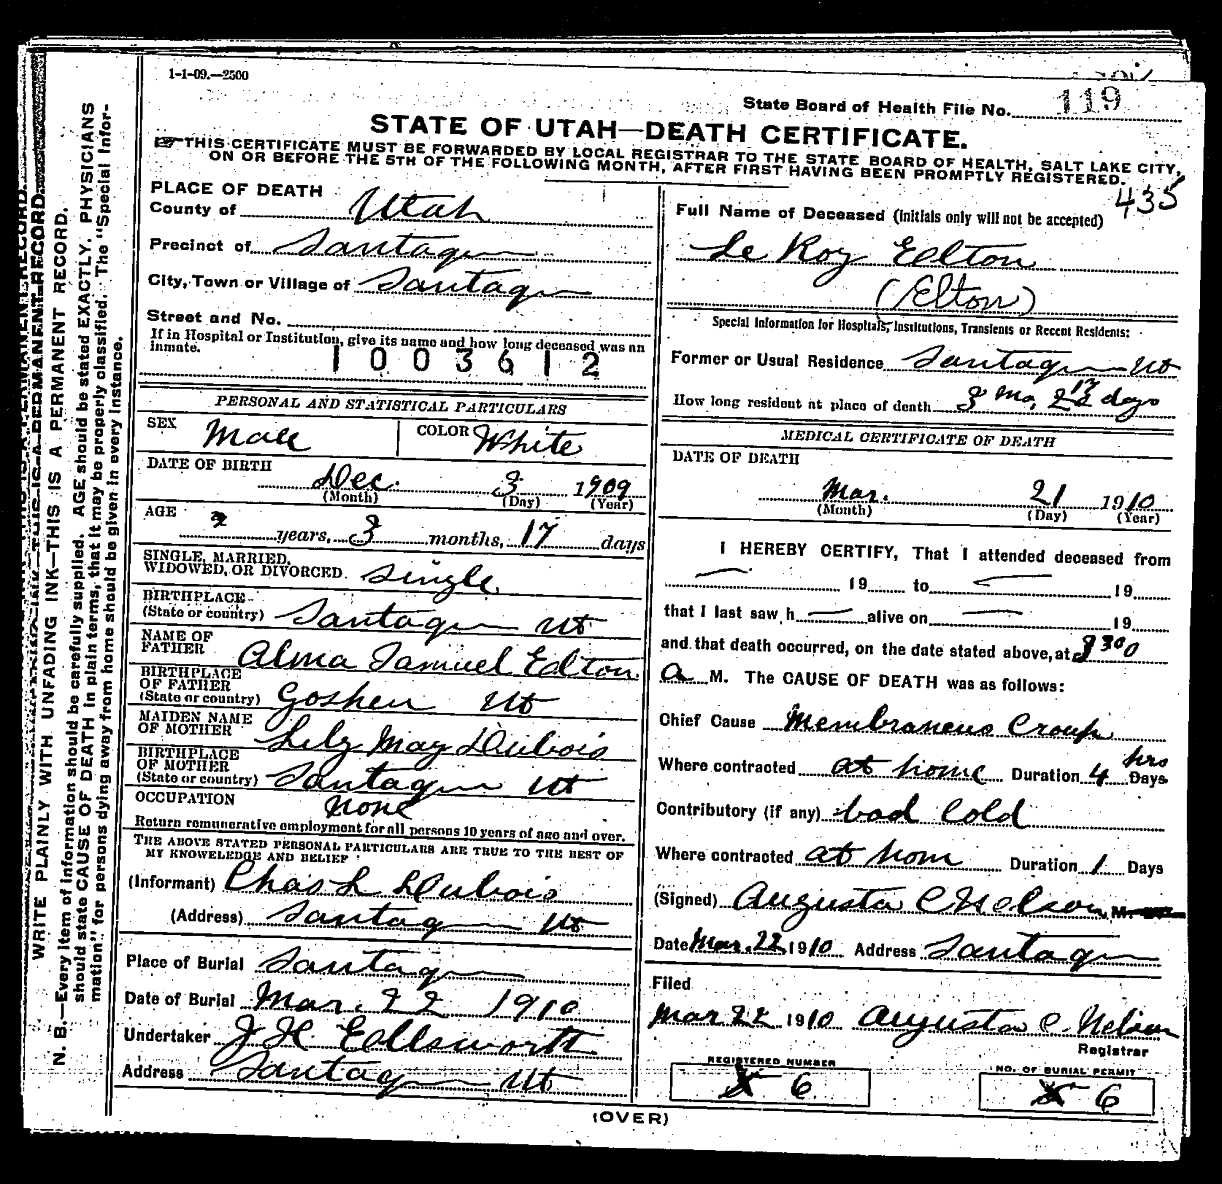 1-1-09.—2500
State Board of Health File No. 119
STATE OF UTAH—DEATH CERTIFICATE.
☞THIS CERTIFICATE MUST BE FORWARDED BY LOCAL REGISTRAR TO THE STATE BOARD OF HEALTH, SALT LAKE CITY,
ON OR BEFORE THE 5TH OF THE FOLLOWING MONTH, AFTER FIRST HAVING BEEN PROMPTLY REGISTERED.
435
PLACE OF DEATH
County of Utah
Precinct of Santaquin
City, Town or Village of Santaquin
Street and No.
If in Hospital or Institution, give its name and how long deceased was an
inmate.
1003612
PERSONAL AND STATISTICAL PARTICULARS
SEX Male COLOR White
DATE OF BIRTH
Dec. 3 1909
(Month) (Day) (Year)
AGE
years, 3 months, 17 days
SINGLE, MARRIED,
WIDOWED, OR DIVORCED. Single
BIRTHPLACE
(State or country) Santaquin Ut
NAME OF
FATHER Alma Samuel Eelton
BIRTHPLACE
OF FATHER
(State or country) Goshen Ut
MAIDEN NAME
OF MOTHER Lily May Dubois
BIRTHPLACE
OF MOTHER
(State or country) Santaquin Ut
OCCUPATION None
Return remunerative employment for all persons 10 years of age and over.
THE ABOVE STATED PERSONAL PARTICULARS ARE TRUE TO THE BEST OF
MY KNOWELEDGE AND BELIEF
(Informant) Chas L Dubois
(Address) Santaquin Ut
Place of Burial Santaquin
Date of Burial Mar. 22 1910
Undertaker J H Eellsworth
Address Santaquin Ut
Full Name of Deceased (Initials only will not be accepted)
Le Roy Eelton
(Elton)
Special Information for Hospitals, Institutions, Transients or Recent Residents:
Former or Usual Residence Santaquin Ut
How long resident at place of death 3 Mo, 17 days
MEDICAL CERTIFICATE OF DEATH
DATE OF DEATH
Mar. 21 1910
(Month) (Day) (Year)
I HEREBY CERTIFY, That I attended deceased from
— 19 to — 19
that I last saw h — alive on — 19
and that death occurred, on the date stated above, at 8 30
a M. The CAUSE OF DEATH was as follows:
Chief Cause Membraneus Croup
Where contracted at home Duration 4 hrs Days
Contributory (if any) bad Cold
Where contracted at hom Duration 1 Days
(Signed) Augusta C Nelson, M.
Date Mar. 22 1910 Address Santaquin
Filed
Mar 22 1910 Augusta C. Nelson
Registrar
REGISTERED NUMBER
6
NO. OF BURIAL PERMIT
6
(OVER)
WRITE PLAINLY WITH UNFADING INK—THIS IS A PERMANENT RECORD.
N. B.—Every item of information should be carefully supplied. AGE should be stated EXACTLY. PHYSICIANS
should state CAUSE OF DEATH in plain terms, that it may be properly classified. The "Special Infor-
mation" for persons dying away from home should be given in every instance.